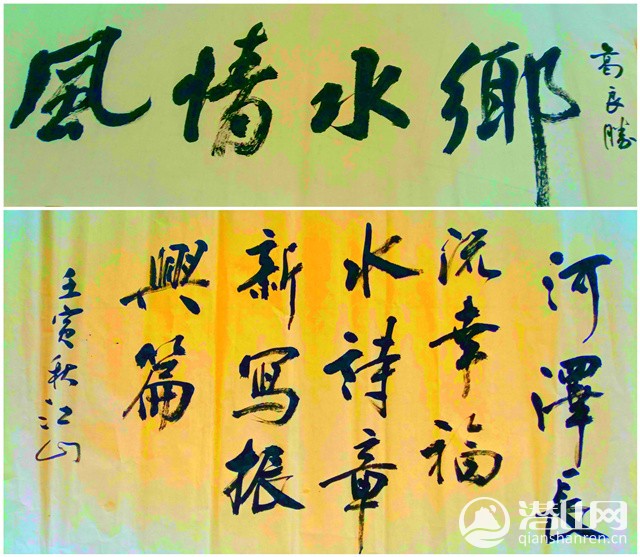 風情水鄉
高良勝
河澤長
流幸福
水詩章
新寫振
興篇
壬寅秋江山
潜山网
qianshanren.cn